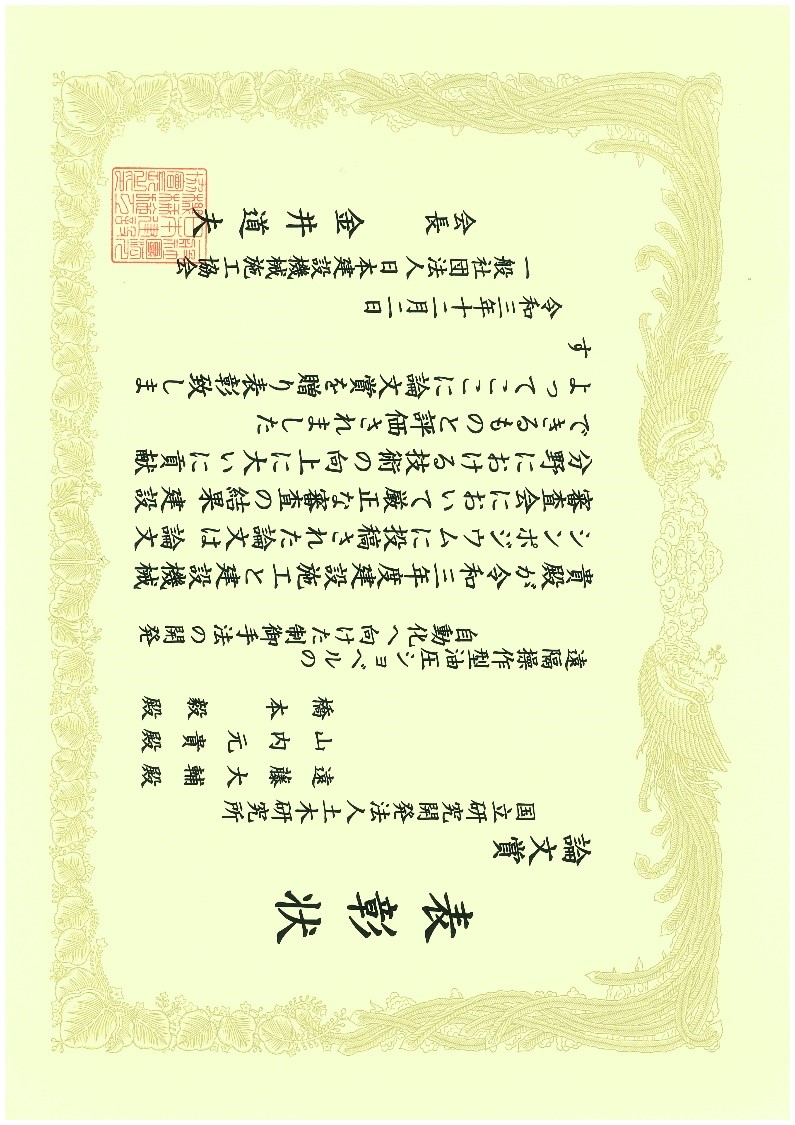 表彰状
論文賞
国立研究開発法人土木研究所
遠藤大輔殿
山内元貴殿
橋本毅殿
遠隔操作型油圧ショベルの
自動化へ向けた制御手法の開発
貴殿が令和三年度建設施工と建設機械
シンポジウムに投稿された論文は論文
審査会において厳正な審査の結果建設
分野における技術の向上に大いに貢献
できるものと評価されました
よってここに論文賞を贈り表彰致しま
す
令和三年十二月二日
一般社団法人日本建設機械施工協会
会長 金井道夫